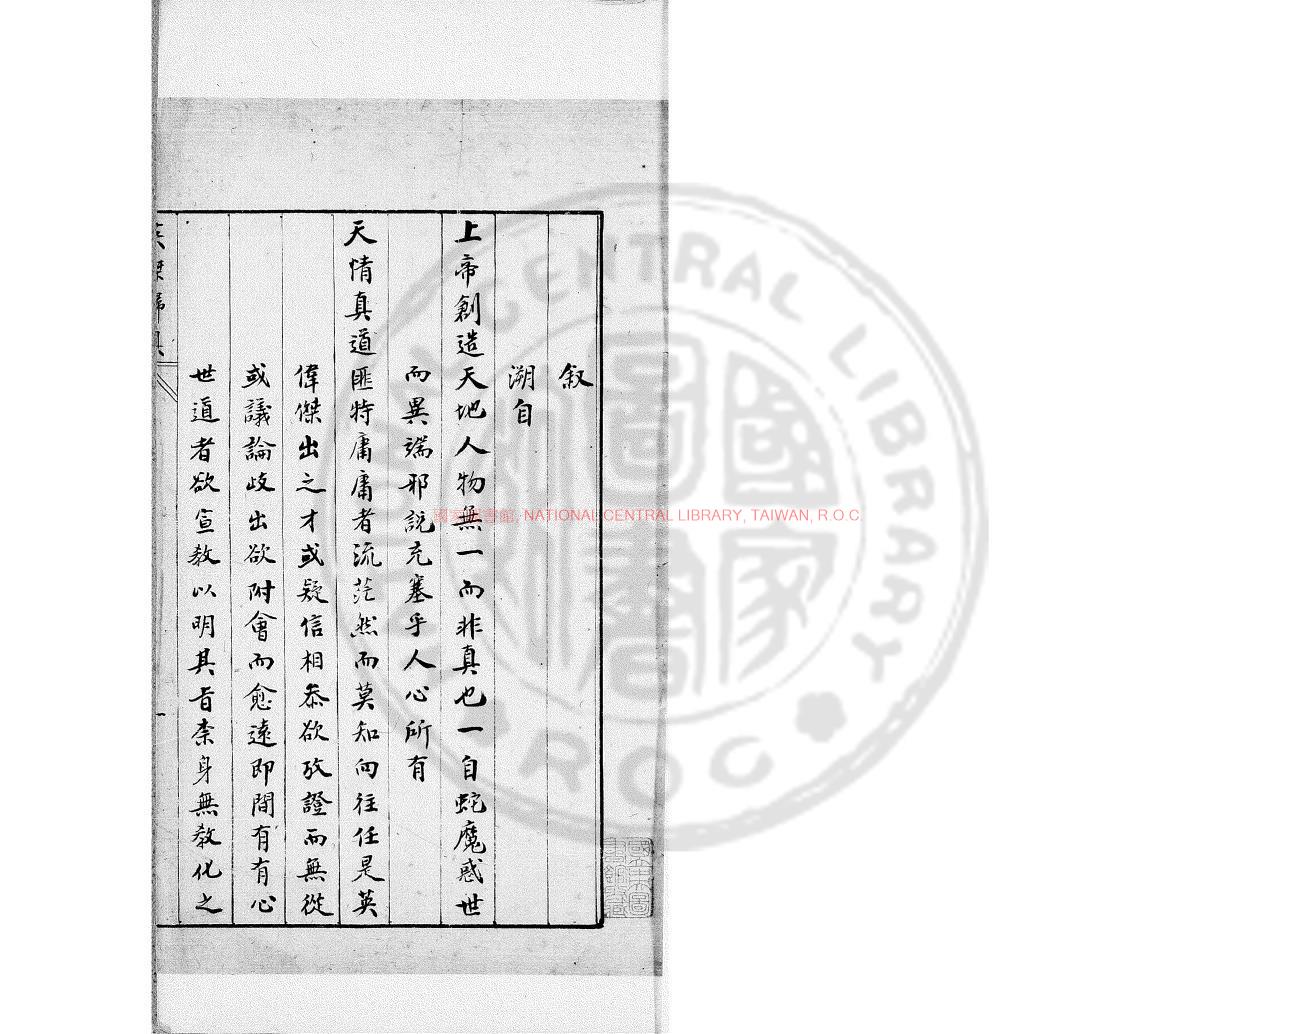 叙
溯自
上帝創造天地人物無一而非真也一自蛇魔惑世
而異端邪說充塞乎人心所有
天情真道匪特庸庸者流茫然而莫知向往任是英
偉傑出之才或疑信相叅欲攷證而無從
或議論歧出欲附會而愈遠即間有有心
世道者欲宣教以明其旨柰身無教化之
國家圖書館, NATIONAL CENTRAL LIBRARY, TAIWAN, R.O.C.
CENTRAL LIBRARY
ROC
國家圖書館